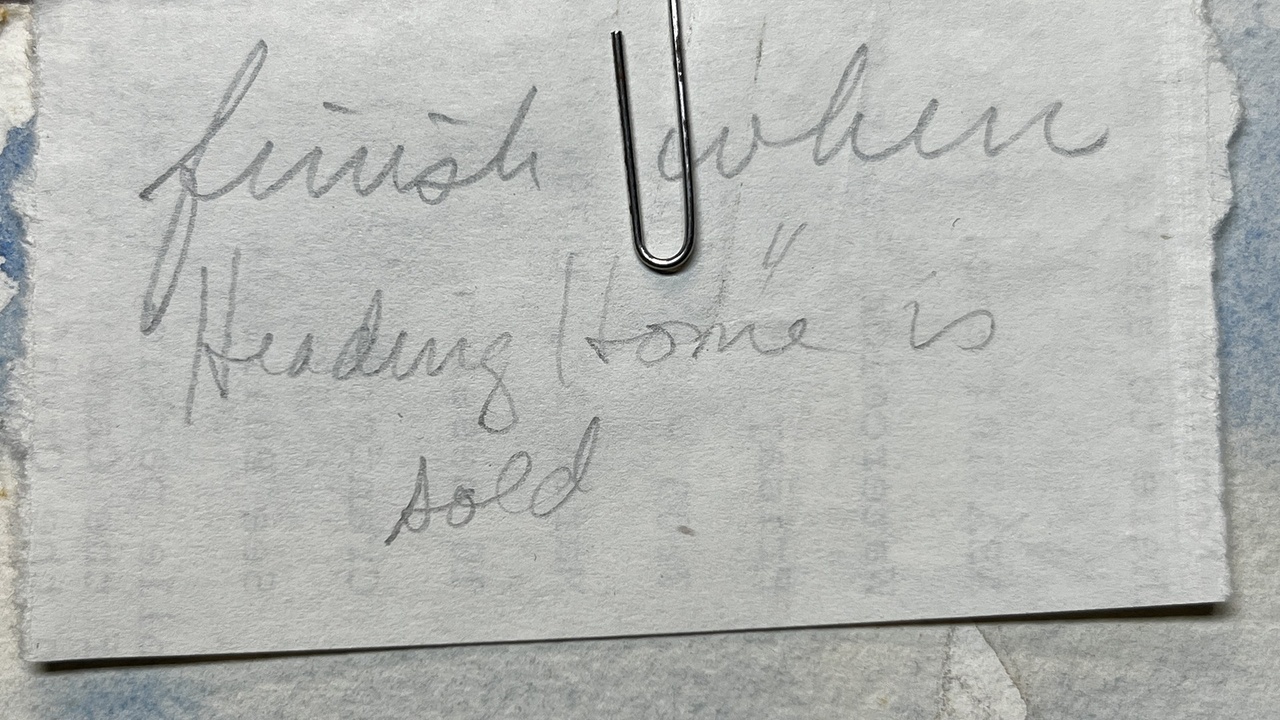 finish when
Heading Home" is
sold